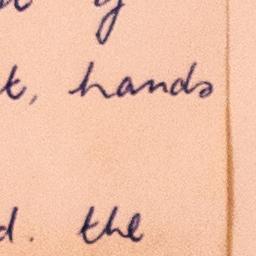 t, hands
d. the